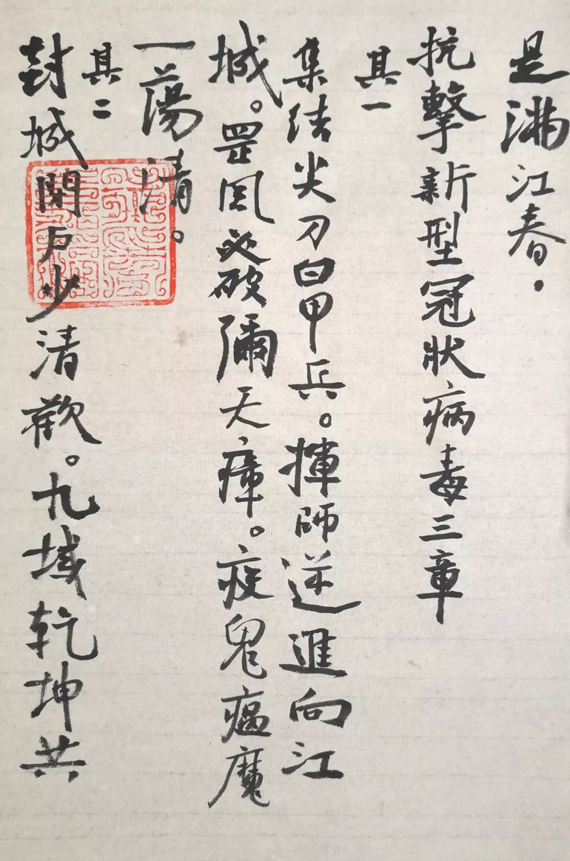 是满江春。
抗擊新型冠狀病毒三章
其一
集结尖刀白甲兵。揮師逆進向江
城。罡風破彌天瘴。疫鬼瘟魔
一蕩清。
其二
封城閉户少清歡。九域乾坤共